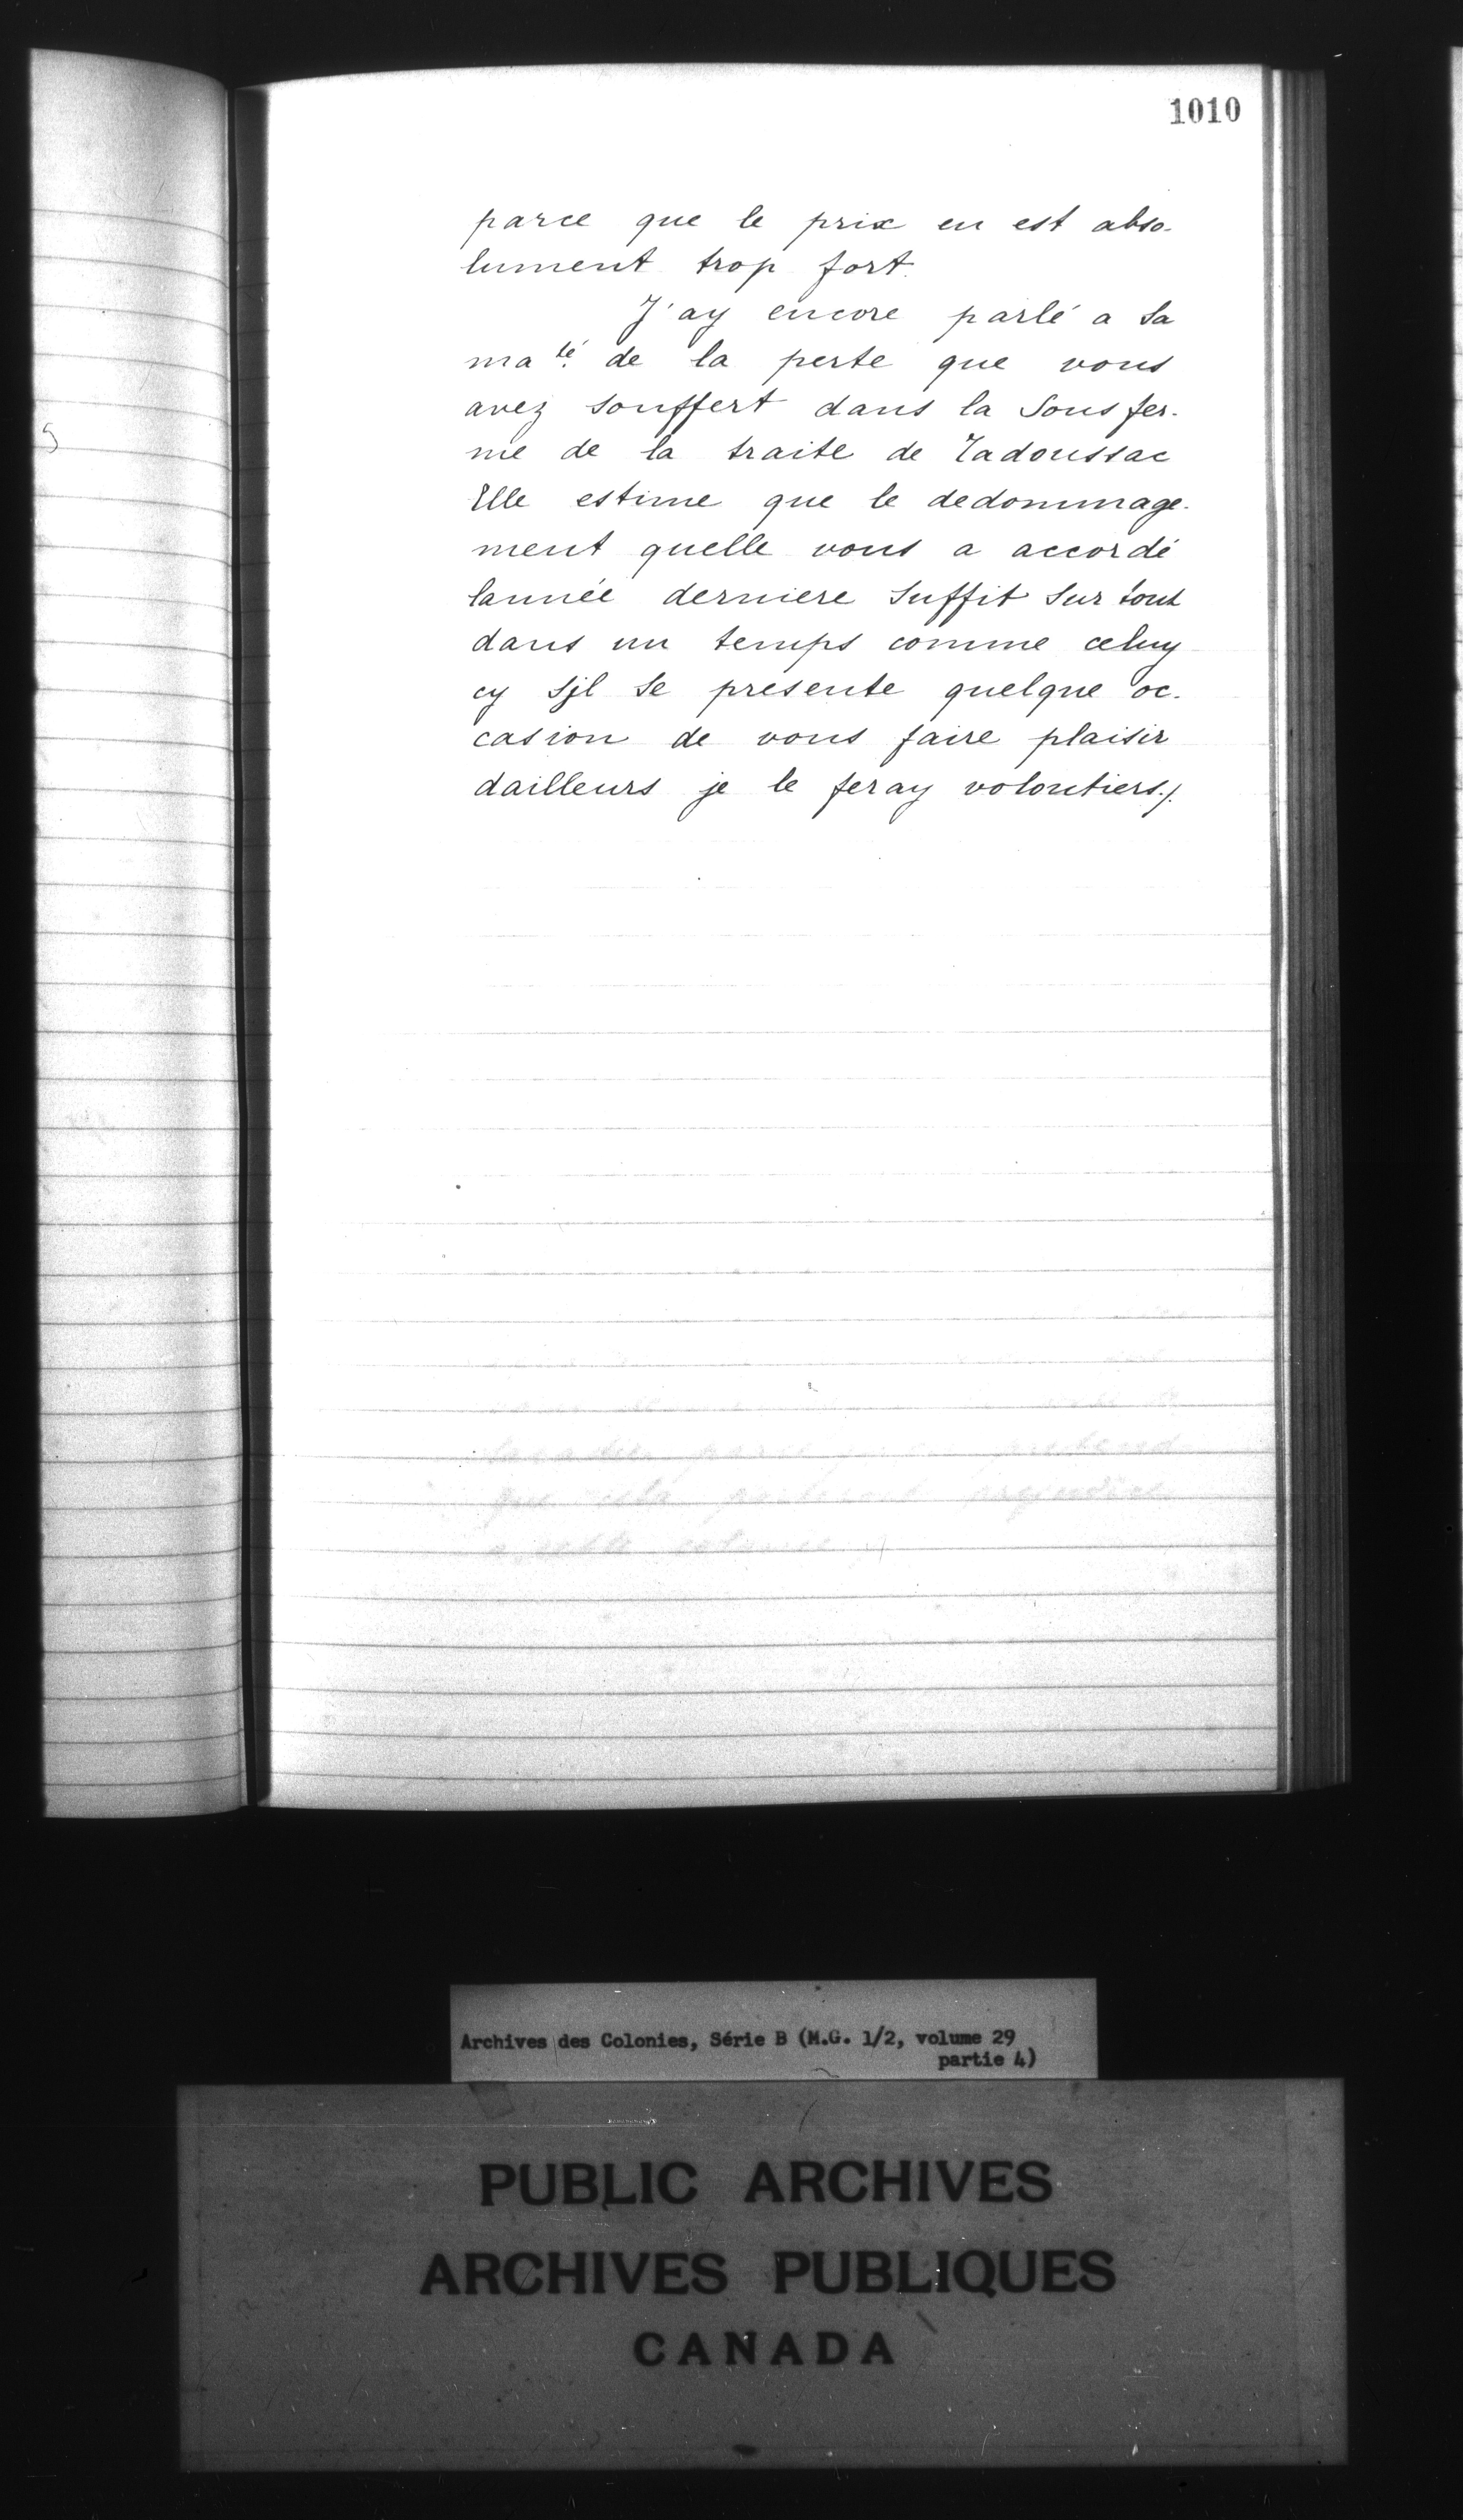 1010
parce que le prix en est abso-
lument trop fort.
J'ay encore parlé a Sa
ma.té de la perte que vous
avez souffert dans la Sous fer-
me de la traite de Tadoussac
Elle estime que le dedommage-
ment quelle vous a accordé
lannée derniere Suffit Sur tout
dans un temps comme celuy
cy Sjl Se presente quelque oc-
casion de vous faire plaisir
dailleurs je le feray volontiers./.
Archives des Colonies, Série B (M.G. 1/2, volume 29
partie 4)
PUBLIC ARCHIVES
ARCHIVES PUBLIQUES
CANADA